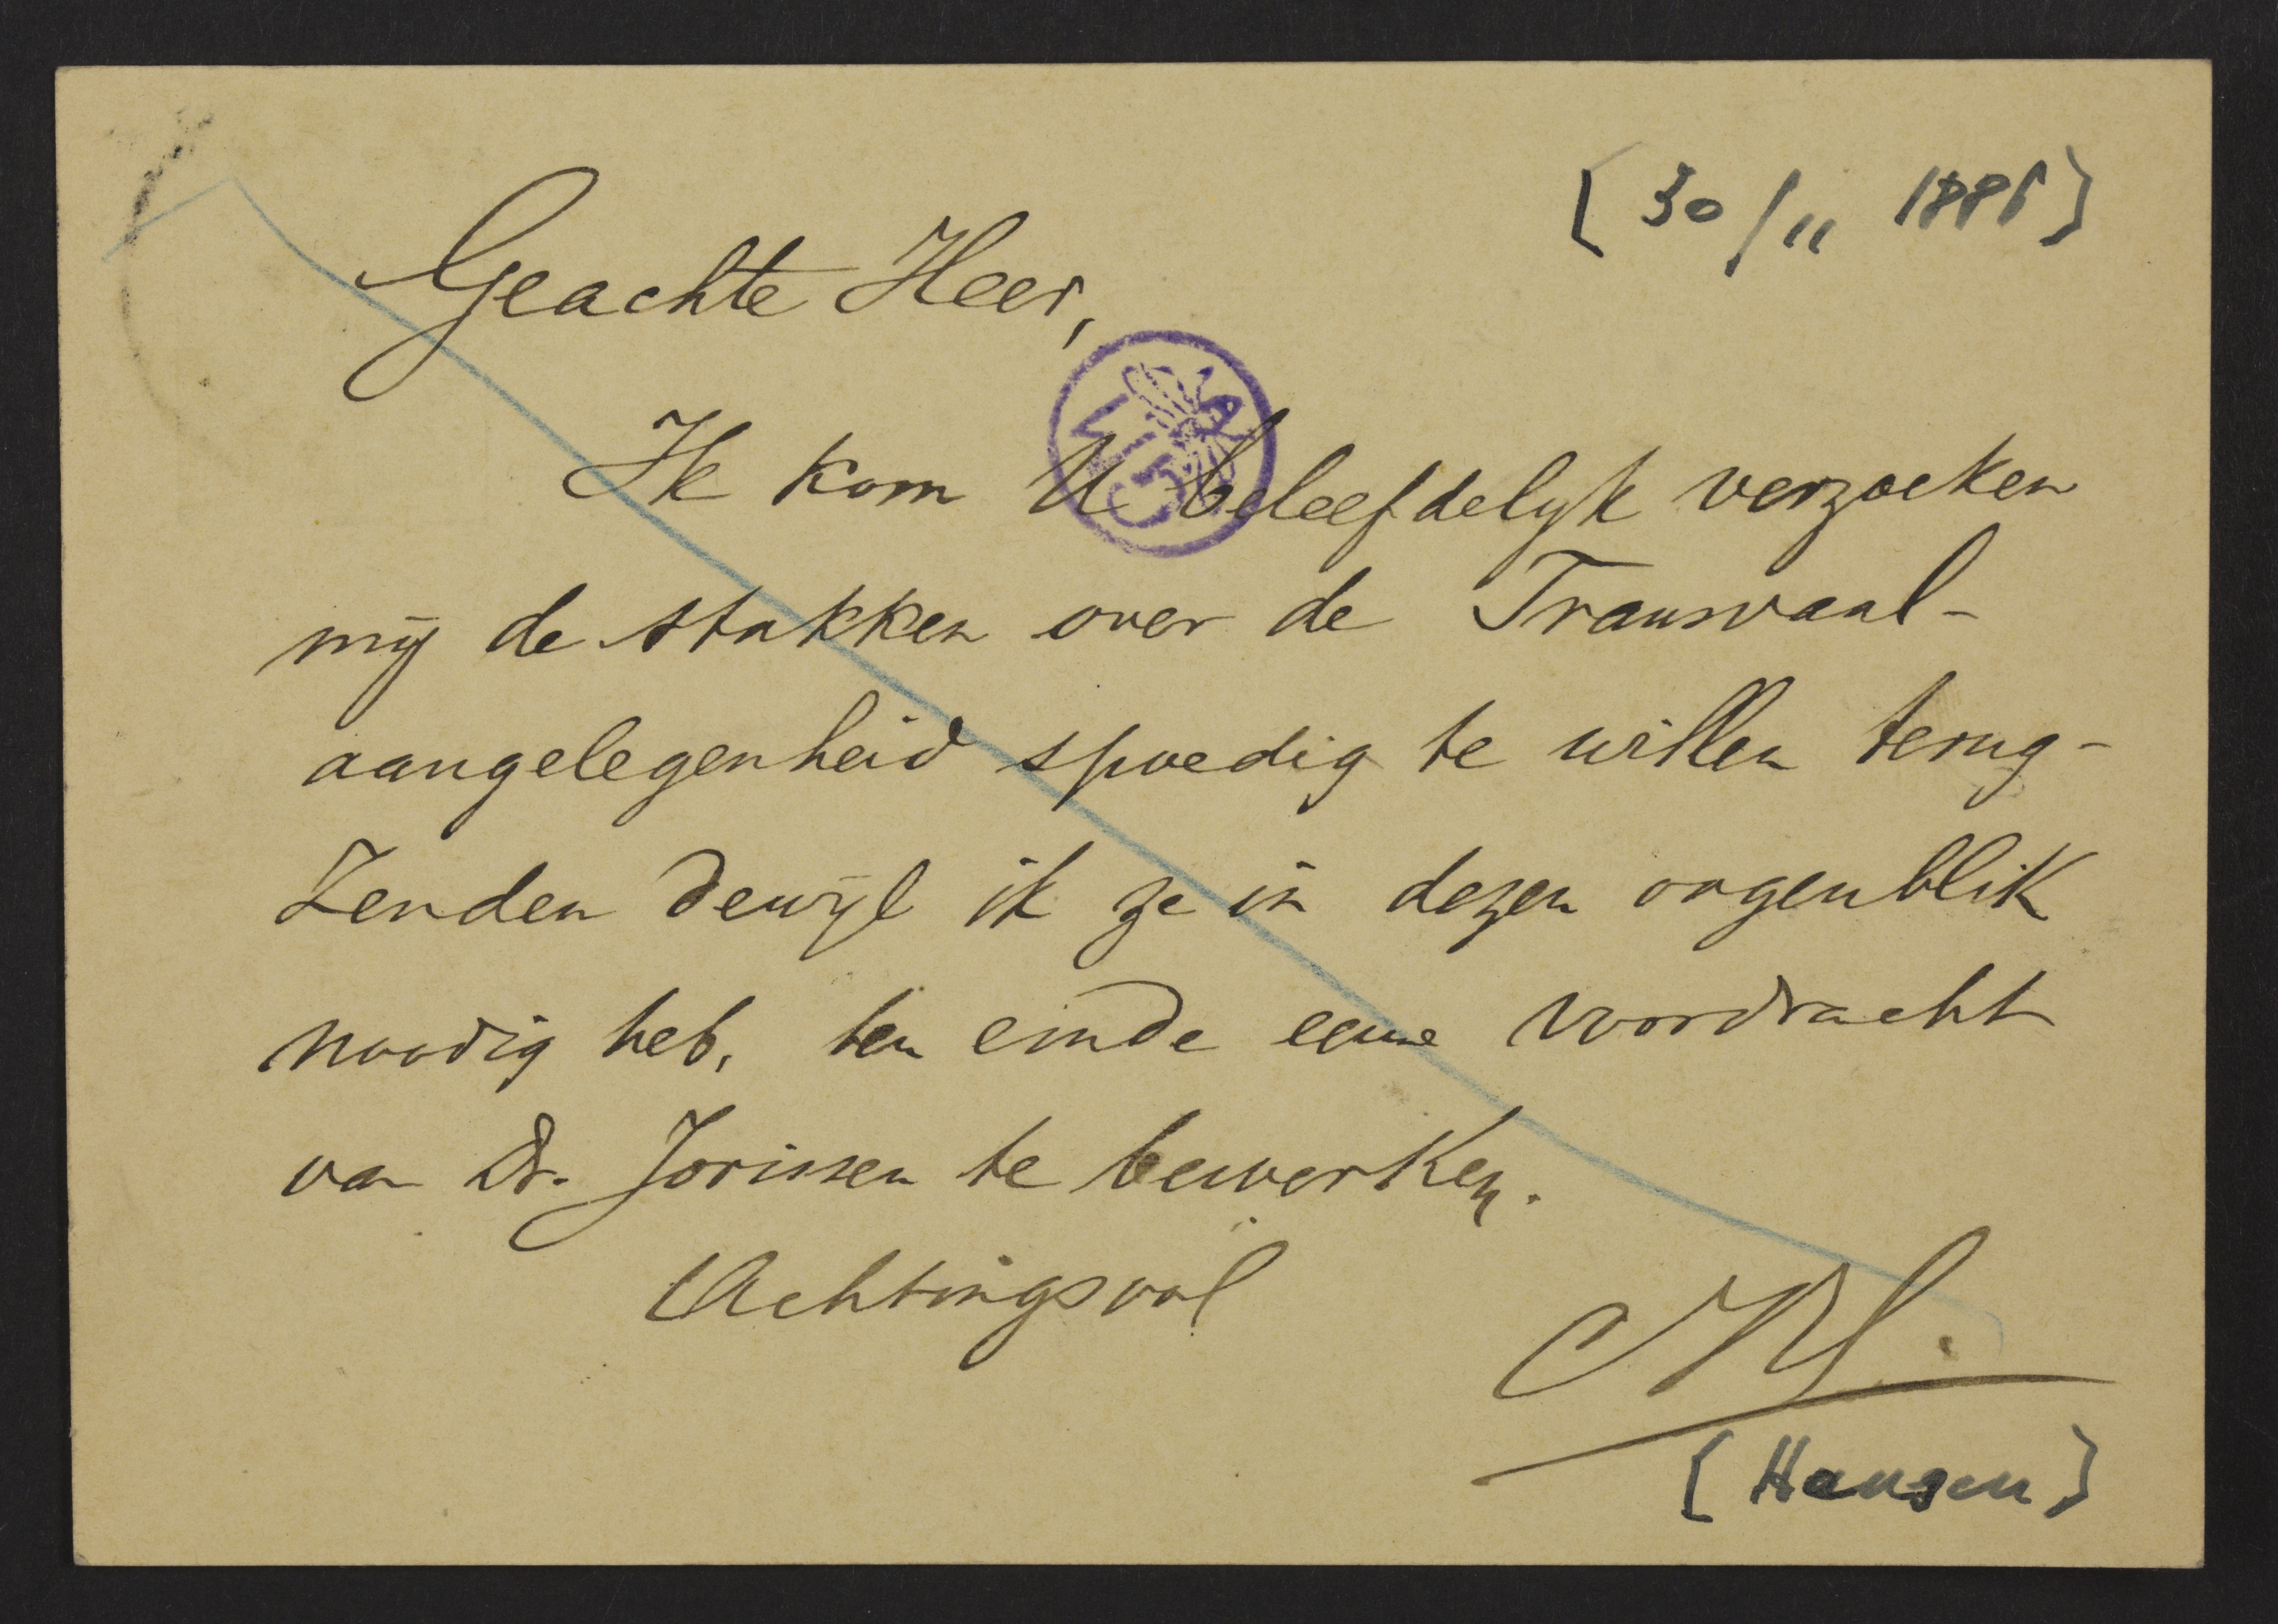 [30/11 1886]
Geachte Heer,
Ik kom U beleefdelyk verzoeken
mij de stukken over de Transvaal-
aangelegenheid spoedig te willen terug-
Zenden dewijl ik ze in dezen oogenblik
noodig heb, ten einde eene voordracht
van Dr. Jorissen te bewerken.
Achtingsvol
[Hansen]